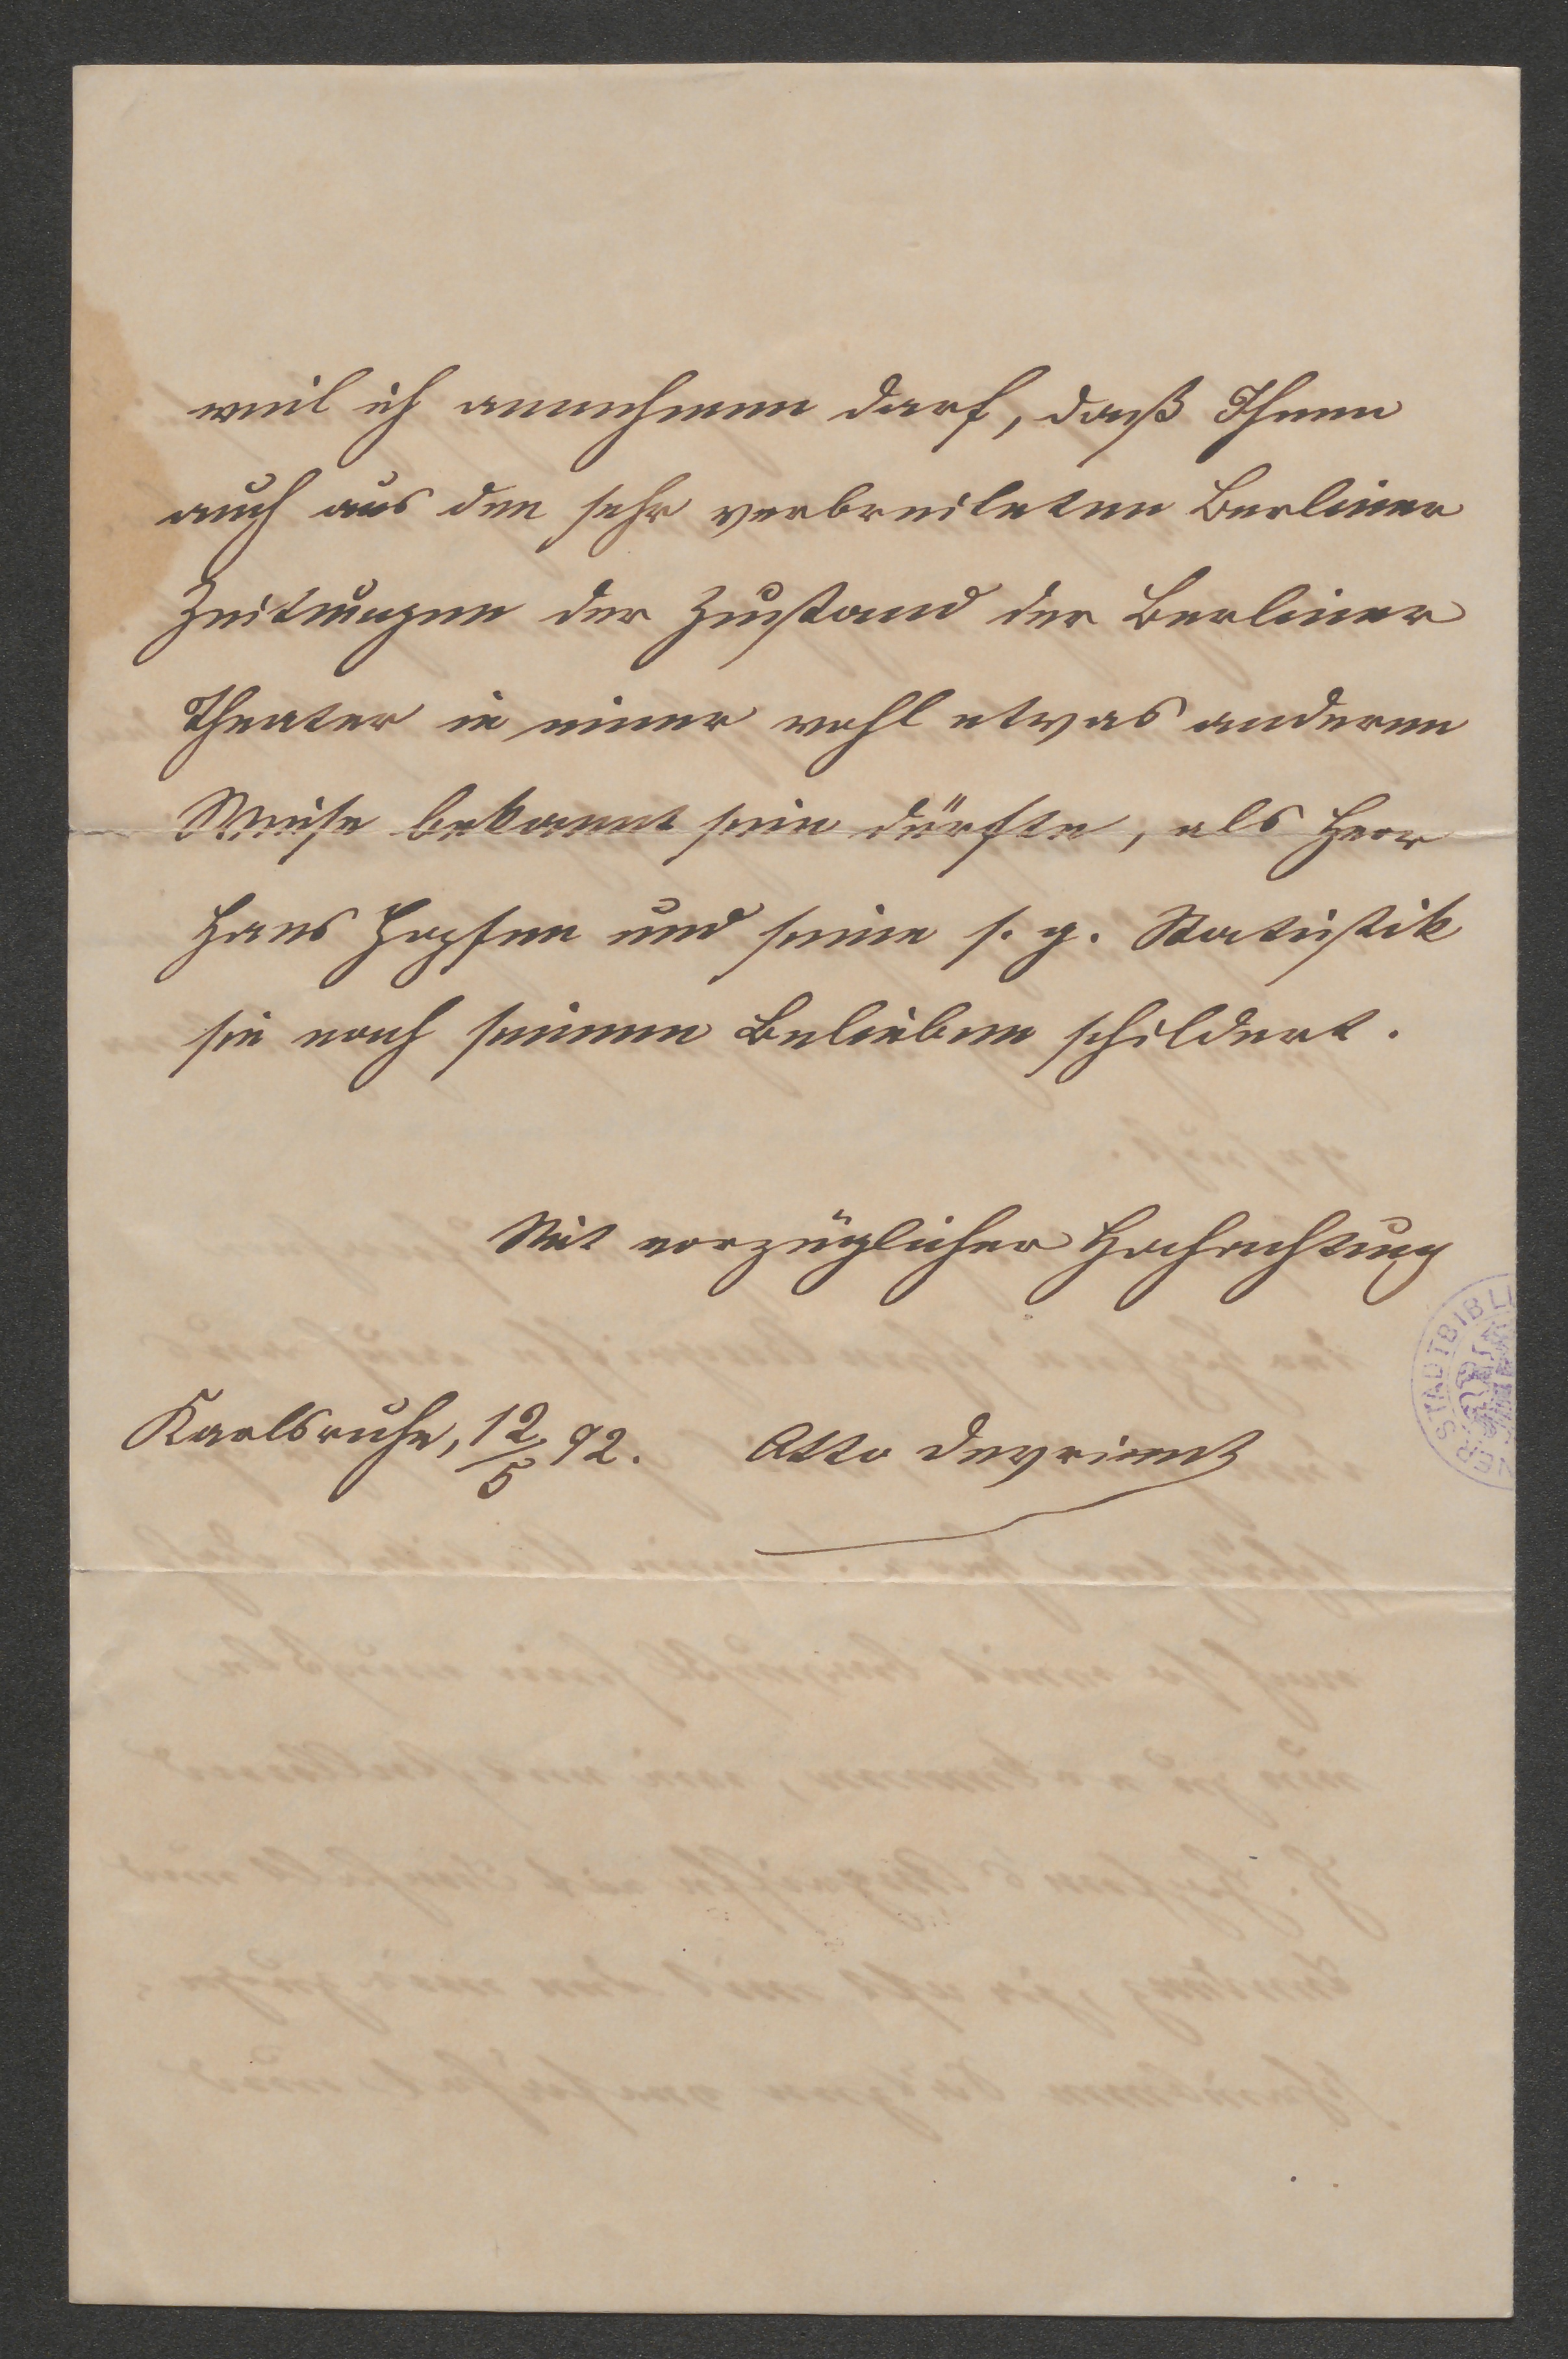 weil ich annehmen darf, daß Ihnen
auch aus den sehr verbreiteten Berliner
Zeitungen der Zustand der Berliner
Theater in einer wohl etwas anderen
Weise bekannt sein dürfte, als Herr
Hans Hopfen und seine s. g. Statistik
sie nach seinem Belieben schildert.
Mit vorzüglicher Hochachtung
Karlsruhe, 12/5 92. Otto Devrient
STADTBIBLI